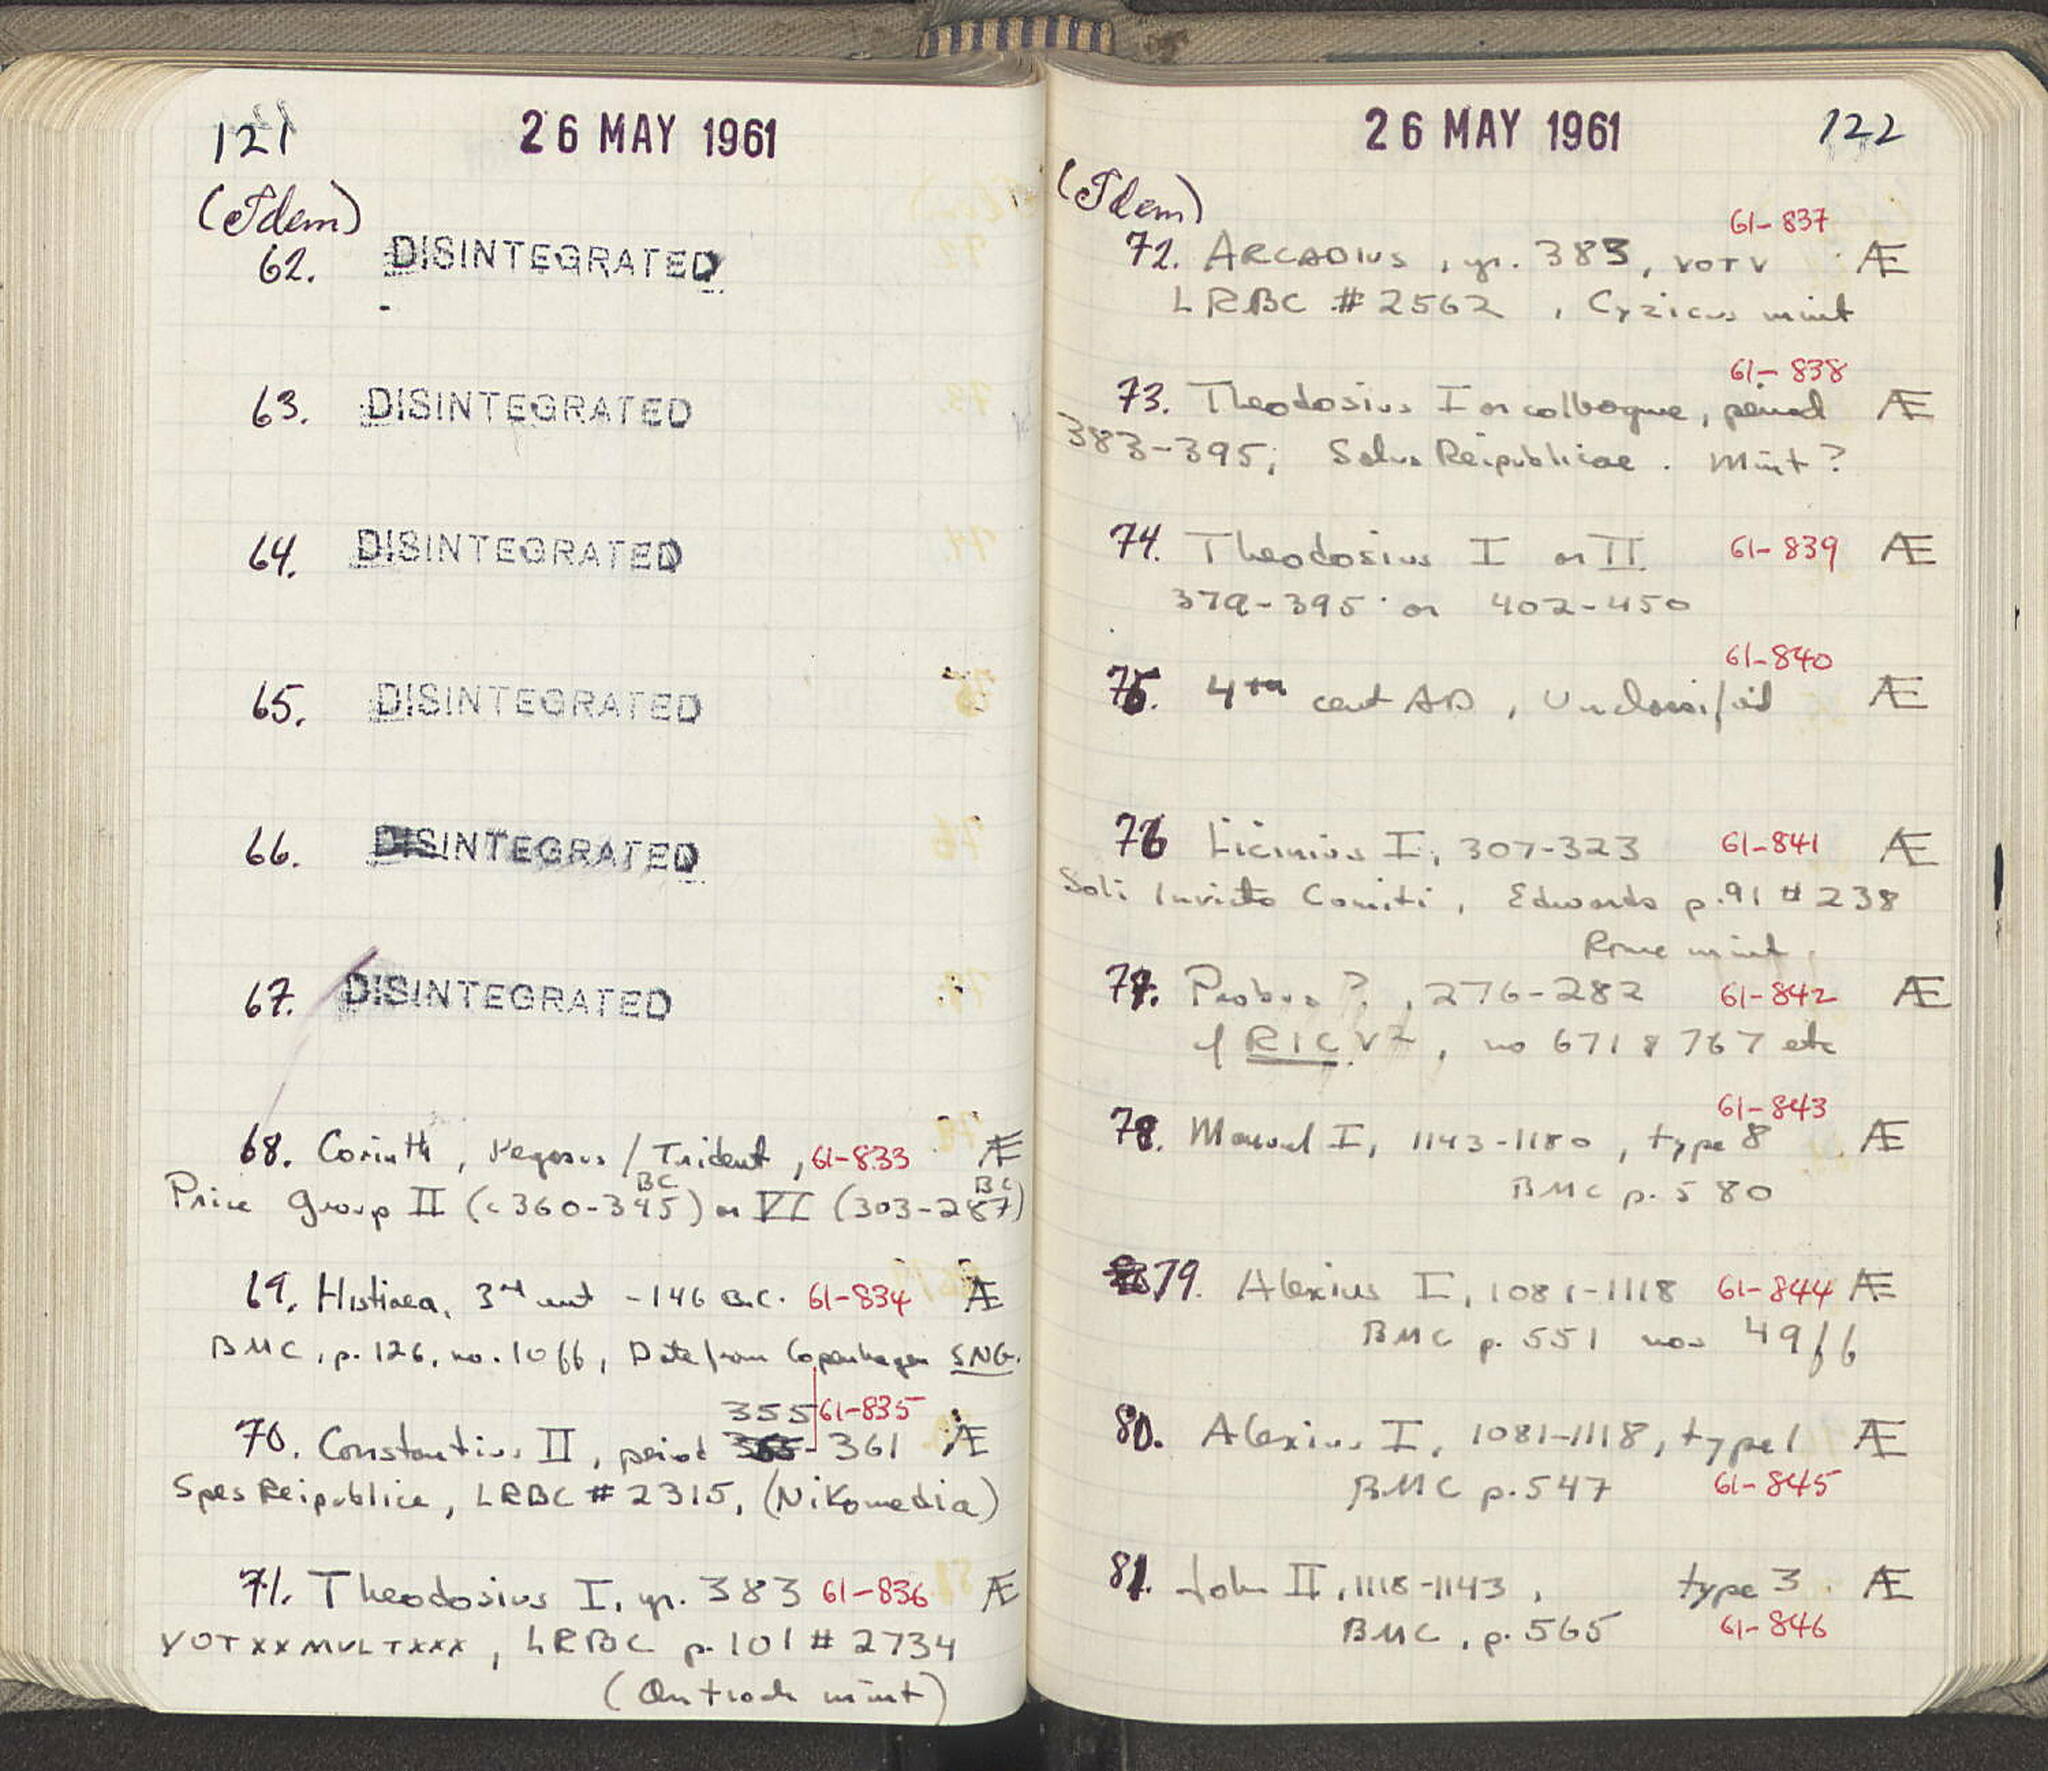 121
26 MAY 1961
(Idem)
62. DISINTEGRATED
63. DISINTEGRATED
64. DISINTEGRATED
65. DISINTEGRATED
66. DISINTEGRATED
67. DISINTEGRATED
68. Corinth, Pegasus / Trident, 61-833 Æ
Price Group II (c 360-345 BC) or VI (303-287 BC)
69. Histiaea, 3rd cent - 146 B.C. 61-834 Æ
BMC, p. 126, no. 10ff, Date from Copenhagen SNG.
355 61-835
70. Constantius II, period - 361 Æ
Spes Reipublice, LRBC # 2315, (Nikomedia)
71. Theodosius I, yr. 383 61-836 Æ
VOTXXMVLTXXX, LRBC p. 101 # 2734
(Antioch mint)
26 MAY 1961
122
(Idem)
61-837
72. ARCADIUS, yr. 383, VOTV Æ
LRBC # 2562, Cyzicus mint
61-838
73. Theodosius I or colleague, period Æ
383-395; Salus Reipublicae. Mint?
74. Theodosius I or II 61-839 Æ
379-395 or 402-450
61-840
75. 4th cent AD, Unclassified Æ
76 Licinius I, 307-323 61-841 Æ
Soli Invicto Comiti, Edwards p. 91 # 238
Rome mint.
77. Probus?, 276-282 61-842 Æ
cf RIC V2, no 671 & 767 etc
61-843
78. Manuel I, 1143-1180, type 8 Æ
BMC p. 580
79. Alexius I, 1081-1118 61-844 Æ
BMC p. 551 nos 49ff
80. Alexius I, 1081-1118, type 1 Æ
BMC p. 547 61-845
81. John II, 1118-1143, type 3. Æ
BMC, p. 565 61-846